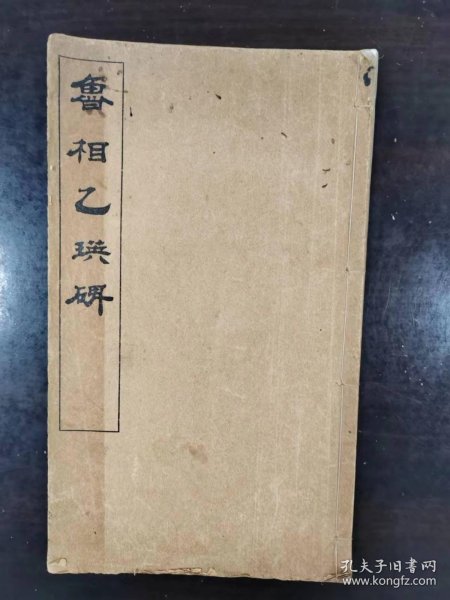 魯相乙瑛碑
孔夫子旧书网
www.kongfz.com